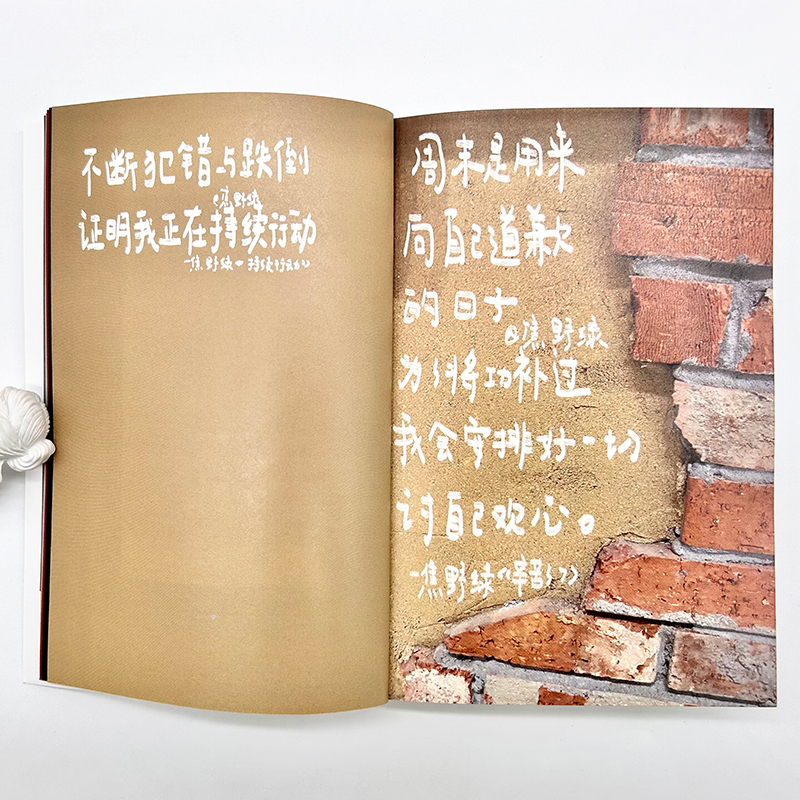 不断犯错与跌倒
@焦野绿
证明我正在持续行动
—焦野绿《持续行动》
周末是用来
向自己道歉
的日子
@焦野绿
为了将功补过
我会安排好一切
讨自己欢心。
—焦野绿《辛苦了》